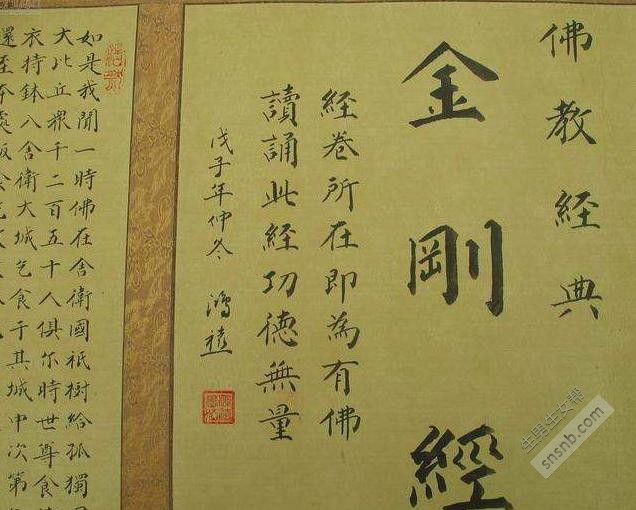 佛教经典
金剛經
經卷所在即為有佛
讀誦此經功德無量
戊子年仲冬
如是我聞一時佛在舍衛國祇樹給孤獨
大比丘眾千二百五十人俱尔時世尊食
衣持鉢入舍衛大城乞食于其城中次第
還至本處飯
生男生女帮
snsnb.com